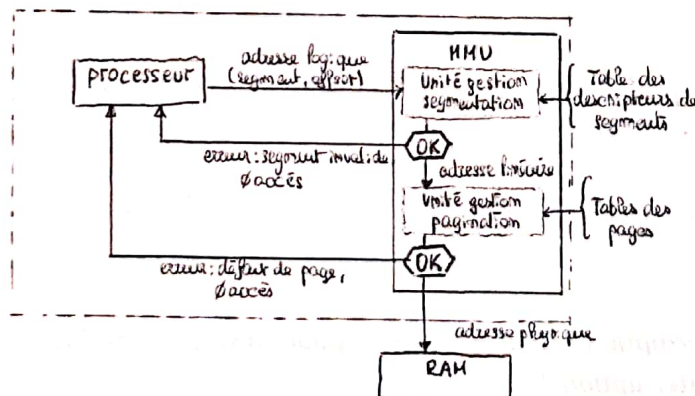 MMU
adresse logique
(segment, offset)
processeur
Unité gestion
segmentation
Table des
descripteurs de
segments
OK
erreur: segment invalide
Ø accès
adresse linéaire
Unité gestion
pagination
Tables des
pages
OK
erreur: défaut de page,
Ø accès
adresse physique
RAM